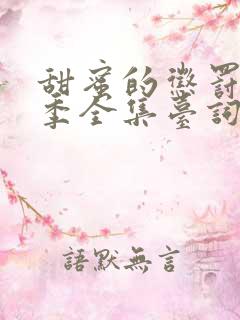 甜蜜的懲罰
季全集臺詞
語默無言